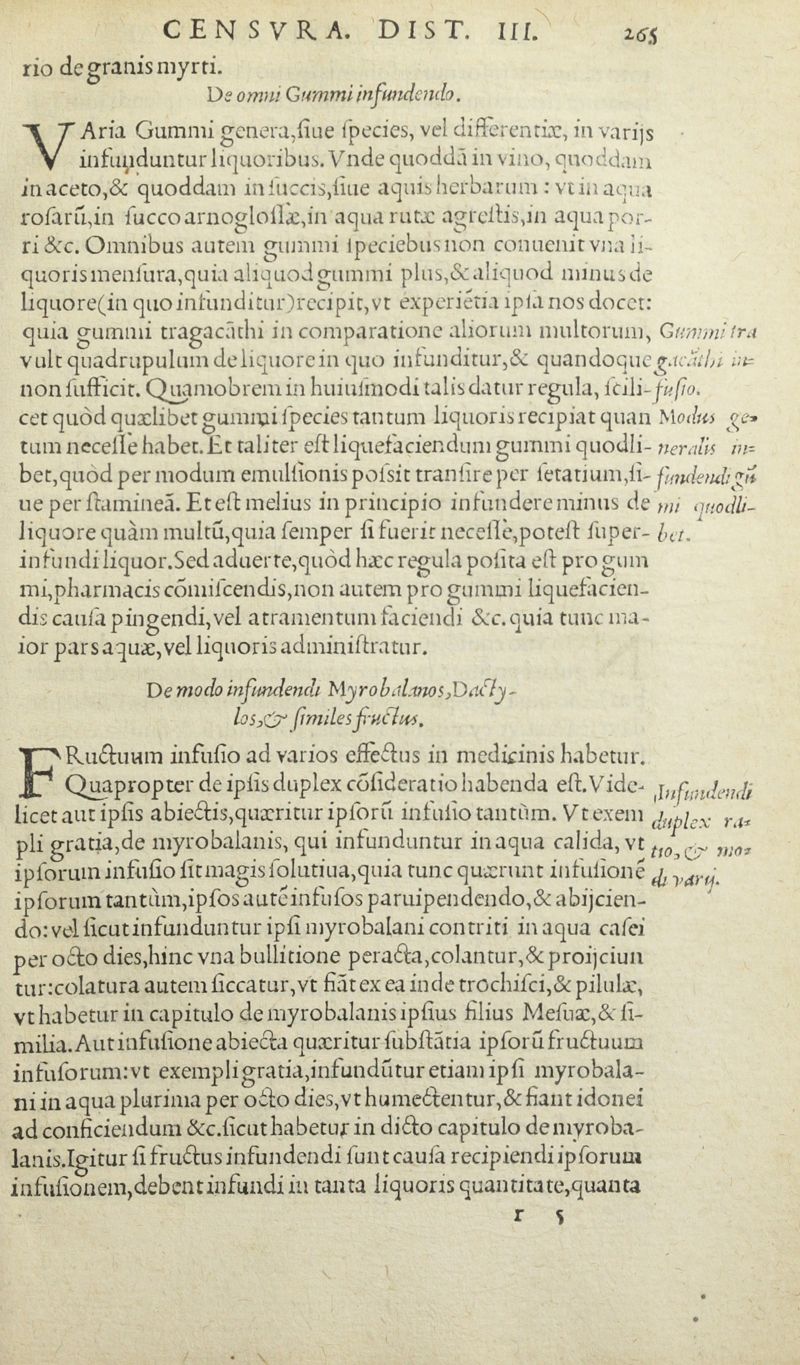 CENSVRA. DIST. III. 265
rio de granis myrti.
De omni Gummi infundendo.
VAria Gummi genera,ſiue ſpecies, vel differentiæ, in varijs
infunduntur liquoribus. Vnde quoddā in vino, quoddam
in aceto,& quoddam in ſuccis,ſiue aquis herbarum : vt in aqua
roſarū,in ſucco arnogloſſæ,in aqua rutæ agreſtis,in aqua por-
ri &c. Omnibus autem gummi ſpeciebus non conuenit vna li-
quoris menſura,quia aliquod gummi plus,& aliquod minus de
liquore(in quo infunditur)recipit,vt experiētia ipſa nos docet:
quia gummi tragacāthi in comparatione aliorum multorum,
vult quadrupulum de liquore in quo infunditur,& quandoque
non ſufficit. Quamobrem in huiuſmodi talis datur regula, ſcili-
cet quòd quælibet gummi ſpecies tantum liquoris recipiat quan
tum neceſſe habet. Et taliter eſt liquefaciendum gummi quodli-
bet,quòd per modum emulſionis poſsit tranſire per ſetatium,ſi-
ue per ſtamineā. Et eſt melius in principio infundere minus de
liquore quàm multū,quia ſemper ſi fuerit neceſſe,poteſt ſuper-
infundi liquor.Sed aduerte,quòd hæc regula poſita eſt pro gum
mi,pharmacis cōmiſcendis,non autem pro gummi liquefacien-
dis cauſa pingendi,vel atramentum faciendi &c. quia tunc ma-
ior pars aquæ,vel liquoris adminiſtratur.
Gummi tra
gacāthi in=
fuſio.
Modus ge=
neralis in=
fundendi gū
mi quodli-
bet.
De modo infundendi Myrobalanos,Dacty-
los,& ſimiles fructus.
FRuctuum infuſio ad varios effectus in medicinis habetur.
Quapropter de ipſis duplex cōſideratio habenda eſt. Vide-
licet aut ipſis abiectis,quæritur ipſorū infuſio tantùm. Vt exem
pli gratia,de myrobalanis, qui infunduntur in aqua calida, vt
ipſorum infuſio ſit magis ſolutiua,quia tunc quærunt infuſionē
ipſorum tantùm,ipſos autē infuſos paruipendendo,& abijcien-
do: vel ſicut infunduntur ipſi myrobalani contriti in aqua caſei
per octo dies,hinc vna bullitione peracta,colantur,& proijciun
tur:colatura autem ſiccatur,vt fiāt ex ea inde trochiſci,& pilulæ,
vt habetur in capitulo de myrobalanis ipſius filius Meſuæ,& ſi-
milia. Aut infuſione abiecta quæritur ſubſtātia ipſorū fructuum
infuſorum:vt exempli gratia,infundūtur etiam ipſi myrobala-
ni in aqua plurima per octo dies,vt humectentur,& fiant idonei
ad conficiendum &c.ſicut habetur in dicto capitulo de myroba-
lanis.Igitur ſi fructus infundendi ſunt cauſa recipiendi ipſorum
infuſionem,debent infundi in tanta liquoris quantitate,quanta
Infundendi
duplex ra=
tio, & mo=
di varij.
r 5